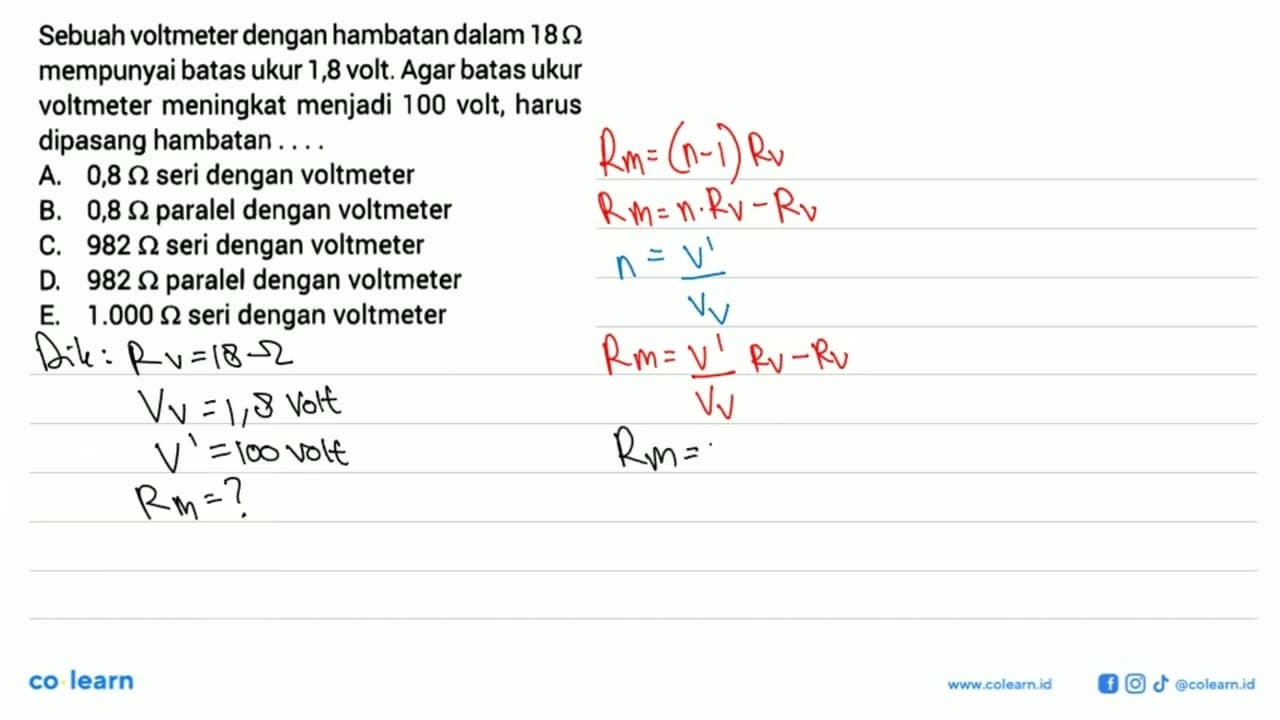 Sebuah voltmeter dengan hambatan dalam 18 Ω
mempunyai batas ukur 1,8 volt. Agar batas ukur
voltmeter meningkat menjadi 100 volt, harus
dipasang hambatan . . . .
A. 0,8 Ω seri dengan voltmeter
B. 0,8 Ω paralel dengan voltmeter
C. 982 Ω seri dengan voltmeter
D. 982 Ω paralel dengan voltmeter
E. 1.000 Ω seri dengan voltmeter
Dik: Rv = 18 Ω
Vv = 1,8 Volt
V' = 100 volt
Rm = ?
Rm = (n-1) Rv
Rm = n · Rv - Rv
n = V'/Vv
Rm = V'/Vv Rv - Rv
Rm =
co learn
www.colearn.id
@colearn.id